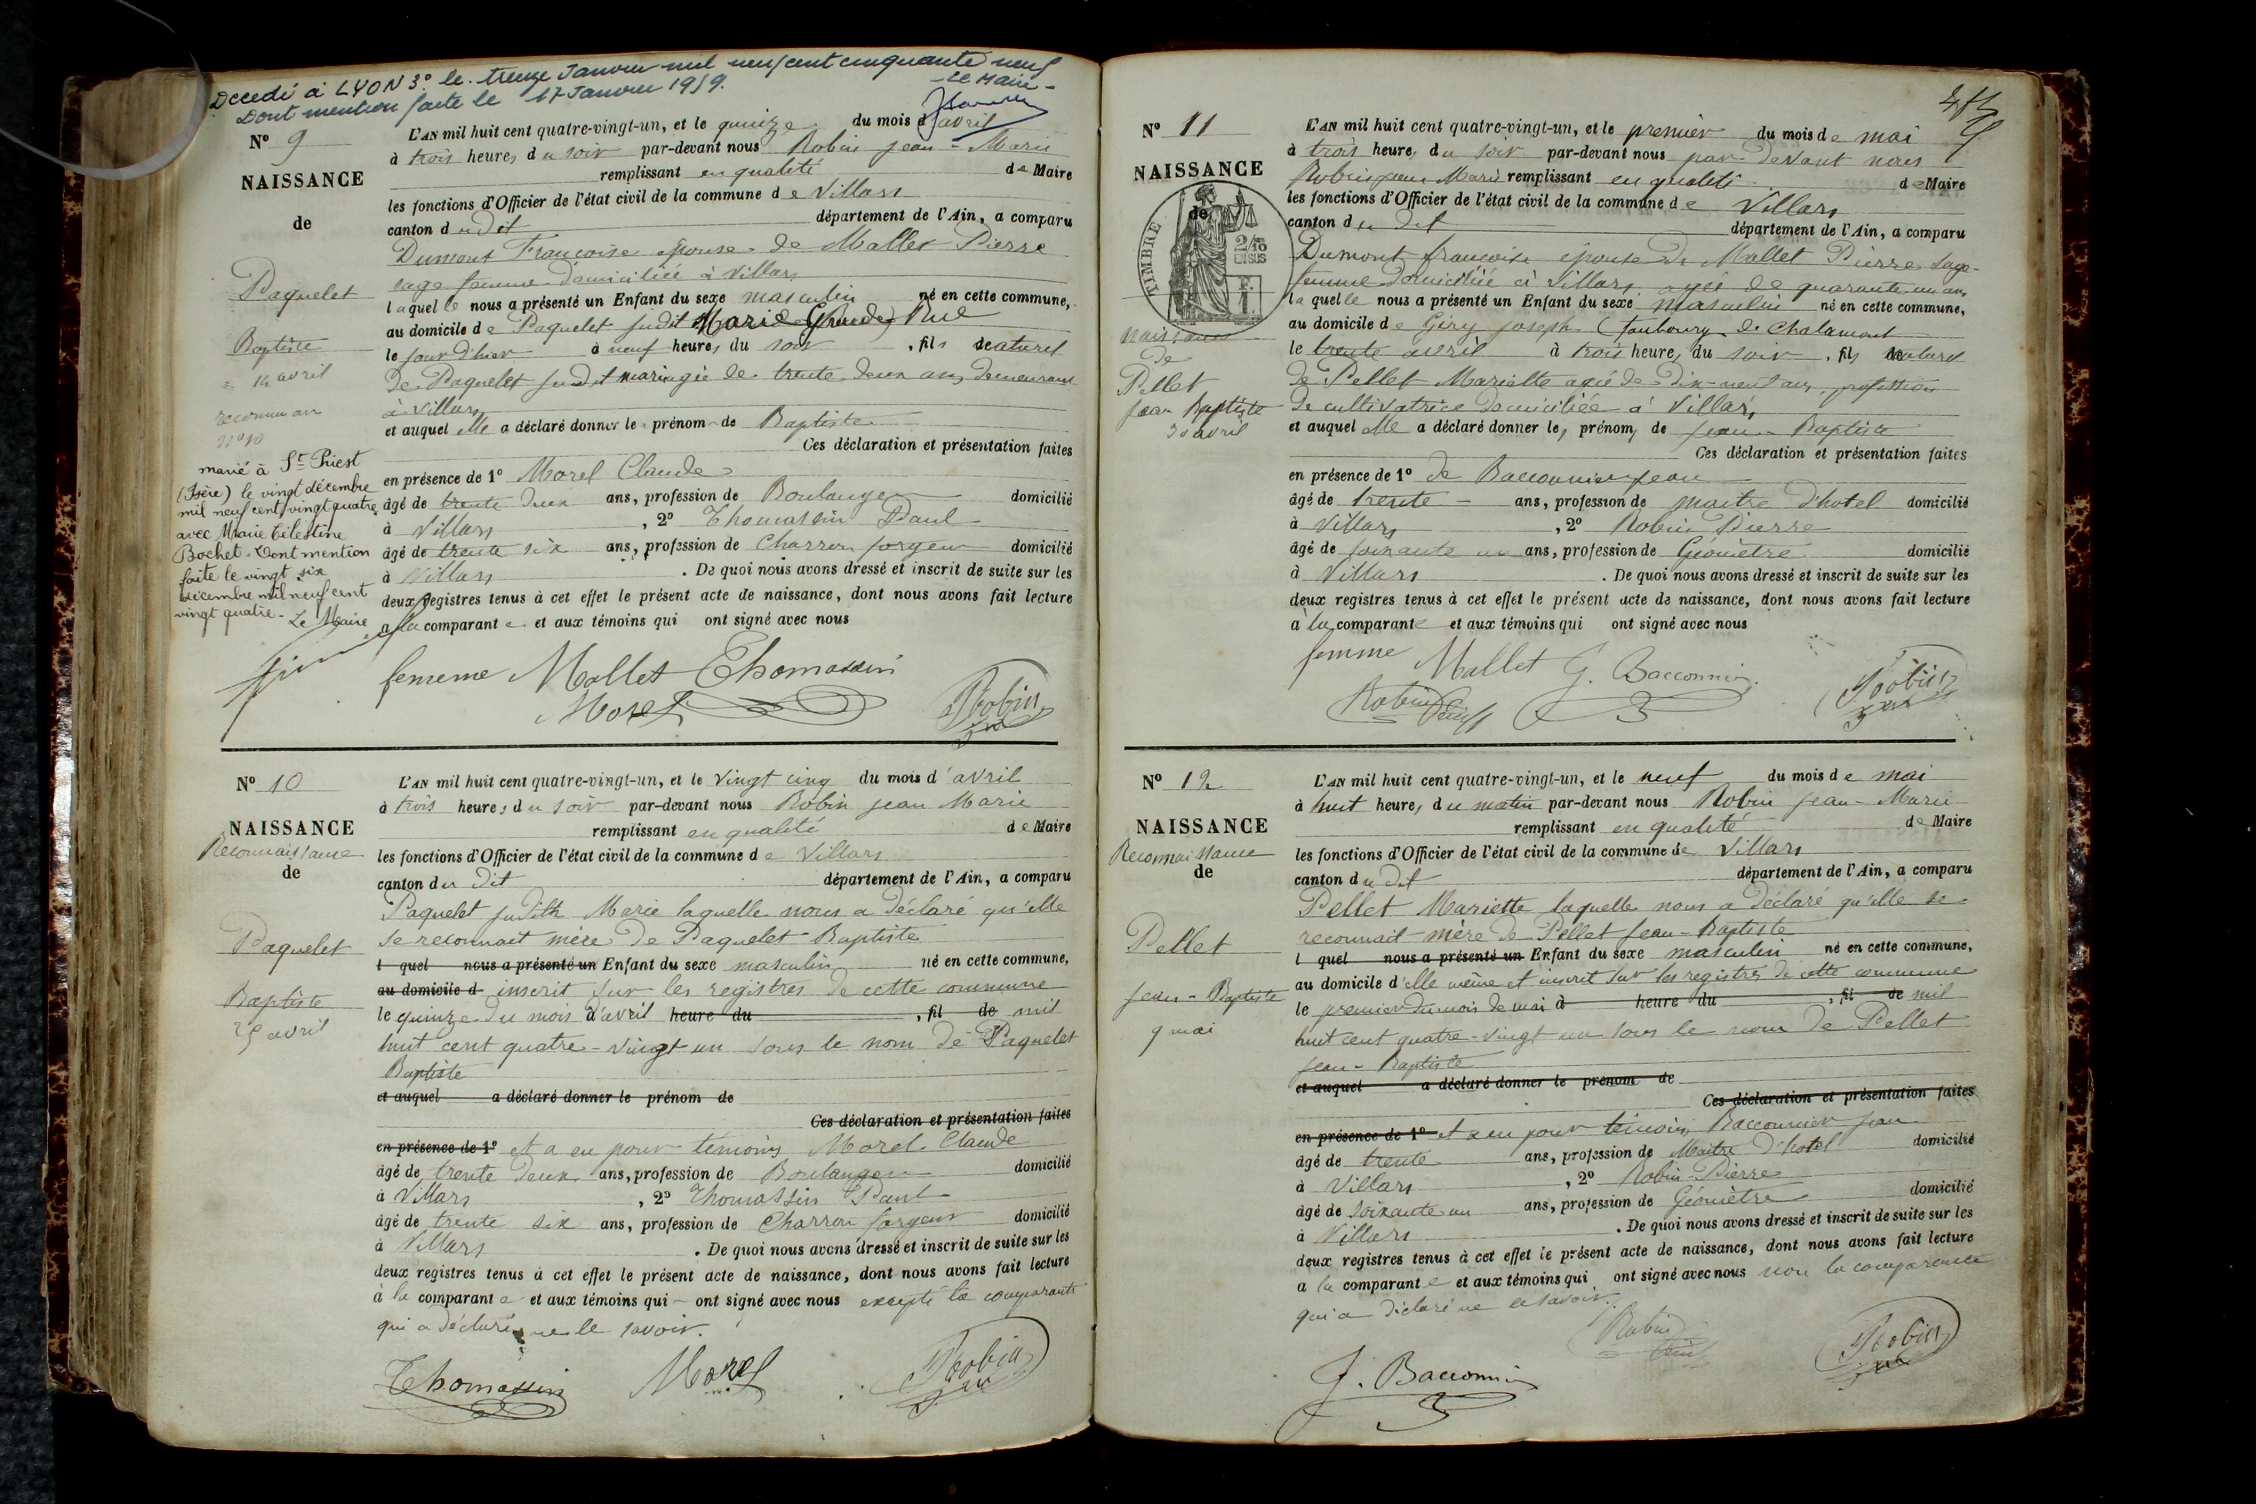 Decedé à LYON 3° le treize Janvier mil neuf cent cinquante neuf
Dont mention faite le 17 Janvier 1959. - Le Maire -
N° 9
NAISSANCE
de
Paquelet
Baptiste
14 avril
reconnu au
n° 10
marié à St Priest
(Isère) le vingt décembre
mil neuf cent vingt quatre
avec Marie Célestine
Bochet. Dont mention
faite le vingt six
décembre mil neuf cent
vingt quatre - Le Maire
L'AN mil huit cent quatre-vingt-un, et le quinze du mois d'avril
à trois heures du soir par-devant nous Robin Jean-Marie
remplissant en qualité de Maire
les fonctions d'Officier de l'état civil de la commune de Villars
canton du dit département de l'Ain, a comparu
Dumont Françoise épouse de Mallet Pierre
sage femme domiciliée à Villars
laquelle nous a présenté un Enfant du sexe masculin né en cette commune,
au domicile de Paquelet Judit Marie Rue
le jour d'hier à neuf heures du soir, fils naturel
de Paquelet Judit Marie agée de trente deux ans demeurant
à Villars
et auquel elle a déclaré donner le prénom de Baptiste
Ces déclaration et présentation faites
en présence de 1° Morel Claude
âgé de trente deux ans, profession de Boulanger domicilié
à Villars, 2° Thomassin Paul
âgé de trente six ans, profession de Charron forgeur domicilié
à Villars. De quoi nous avons dressé et inscrit de suite sur les
deux registres tenus à cet effet le présent acte de naissance, dont nous avons fait lecture
a la comparante et aux témoins qui ont signé avec nous
femme Mallet Thomassin
Morel Robin
N° 10
NAISSANCE
Reconnaissance
de
Paquelet
Baptiste
25 avril
L'AN mil huit cent quatre-vingt-un, et le vingt cinq du mois d'avril
à trois heures du soir par-devant nous Robin Jean Marie
remplissant en qualité de Maire
les fonctions d'Officier de l'état civil de la commune de Villars
canton du dit département de l'Ain, a comparu
Paquelet Judith Marie laquelle nous a déclaré qu'elle
se reconnait mère de Paquelet Baptiste
l quel nous a présenté un Enfant du sexe masculin né en cette commune,
au domicile d inscrit sur les registres de cette commune
le quinze du mois d'avril heure du , fil de mil
huit cent quatre-vingt un sous le nom de Paquelet
Baptiste
et auquel a déclaré donner le prénom de
Ces déclaration et présentation faites
en présence de 1° et a eu pour témoins Morel Claude
âgé de trente deux ans, profession de Boulanger domicilié
à Villars, 2° Thomassin Paul
âgé de trente six ans, profession de Charron forgeur domicilié
à Villars. De quoi nous avons dressé et inscrit de suite sur les
deux registres tenus à cet effet le présent acte de naissance, dont nous avons fait lecture
à la comparante et aux témoins qui ont signé avec nous excepté la comparante
qui a déclaré ne le savoir.
Thomassin Morel Robin
N° 11
NAISSANCE
de
TIMBRE
naissance
de
Pellet
Jean Baptiste
30 avril
L'AN mil huit cent quatre-vingt-un, et le premier du mois de mai
à trois heures du soir par-devant nous par-devant nous
Robin Jean Marie remplissant en qualité de Maire
les fonctions d'Officier de l'état civil de la commune de Villars
canton du dit département de l'Ain, a comparu
Dumont françoise épouse de Mallet Pierre sage-
femme domiciliée à Villars agée de quarante un ans
laquelle nous a présenté un Enfant du sexe masculin né en cette commune,
au domicile de Géry Joseph (faubourg de Chalamont
le trente avril à trois heures du soir, fils naturel
de Pellet Mariette agée de dix-neuf ans, profession
de cultivatrice domiciliée à Villars,
et auquel elle a déclaré donner les prénoms de Jean-Baptiste
Ces déclaration et présentation faites
en présence de 1° de Bacconnier Jean
âgé de trente ans, profession de maitre d'hotel domicilié
à Villars, 2° Robin Pierre
âgé de soixante un ans, profession de Géomètre domicilié
à Villars. De quoi nous avons dressé et inscrit de suite sur les
deux registres tenus à cet effet le présent acte de naissance, dont nous avons fait lecture
à la comparante et aux témoins qui ont signé avec nous
femme Mallet J. Bacconnier
Robin Robin
N° 12
NAISSANCE
Reconnaissance
de
Pellet
Jean-Baptiste
9 mai
L'AN mil huit cent quatre-vingt-un, et le neuf du mois de mai
à huit heures du matin par-devant nous Robin Jean-Marie
remplissant en qualité de Maire
les fonctions d'Officier de l'état civil de la commune de Villars
canton du dit département de l'Ain, a comparu
Pellet Mariette laquelle nous a déclaré qu'elle se
reconnait mère de Pellet Jean-Baptiste
l quel nous a présenté un Enfant du sexe masculin né en cette commune,
au domicile d'elle même et inscrit sur les registres de cette commune
le premier du mois de mai à heure du , fil de mil
huit cent quatre-vingt un sous le nom de Pellet
Jean-Baptiste
et auquel a déclaré donner le prénom de
Ces déclaration et présentation faites
en présence de 1° et a eu pour témoins Bacconnier Jean
âgé de trente ans, profession de Maitre d'hotel domicilié
à Villars, 2° Robin Pierre
âgé de soixante un ans, profession de Géomètre domicilié
à Villars. De quoi nous avons dressé et inscrit de suite sur les
deux registres tenus à cet effet le présent acte de naissance, dont nous avons fait lecture
a la comparante et aux témoins qui ont signé avec nous non la comparence
qui a déclaré ne le savoir.
Robin Robin
J. Bacconnier